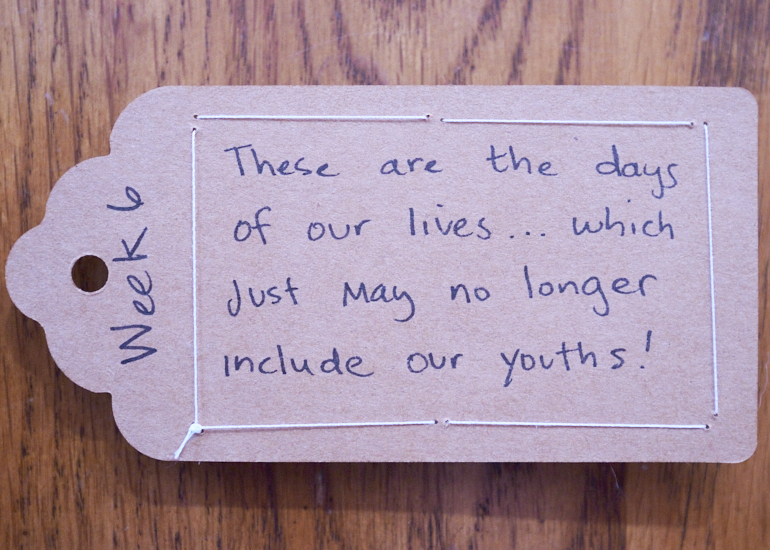 Week 6
These are the days
of our lives... which
Just May no longer
include our youths!